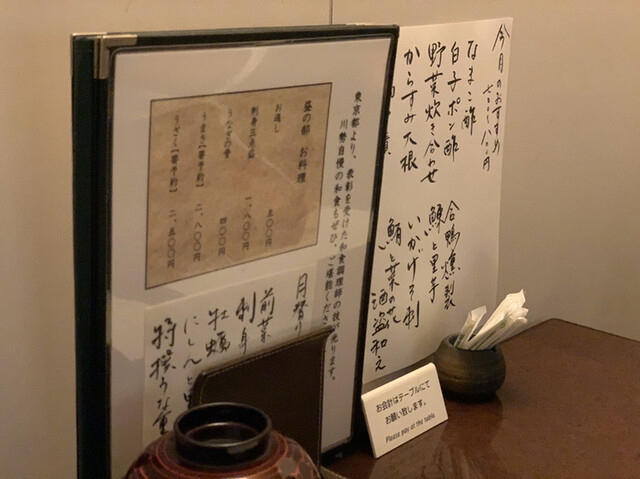 東京都より、表彰を受けた和食調理師の技が光ります。
川勢自慢の和食もぜひ、ご堪能くださ
昼の部 お料理
お通し 五〇〇円
刺身三点盛 一、八〇〇円
うなぎの骨 四〇〇円
うまき【要予約】 二、八〇〇円
うざく【要予約】 二、五〇〇円
月替り
前菜
刺身
牡蠣
にしんと
特撰うな重
今月のおすすめ
なまこ酢
白子ポン酢
野菜炊き合わせ
からすみ大根
合鴨燻製
鰊と里芋
いかげそ刺
鮪と菜の花
酒盗和え
お会計はテーブルにて
お願い致します。
Please pay at the table.